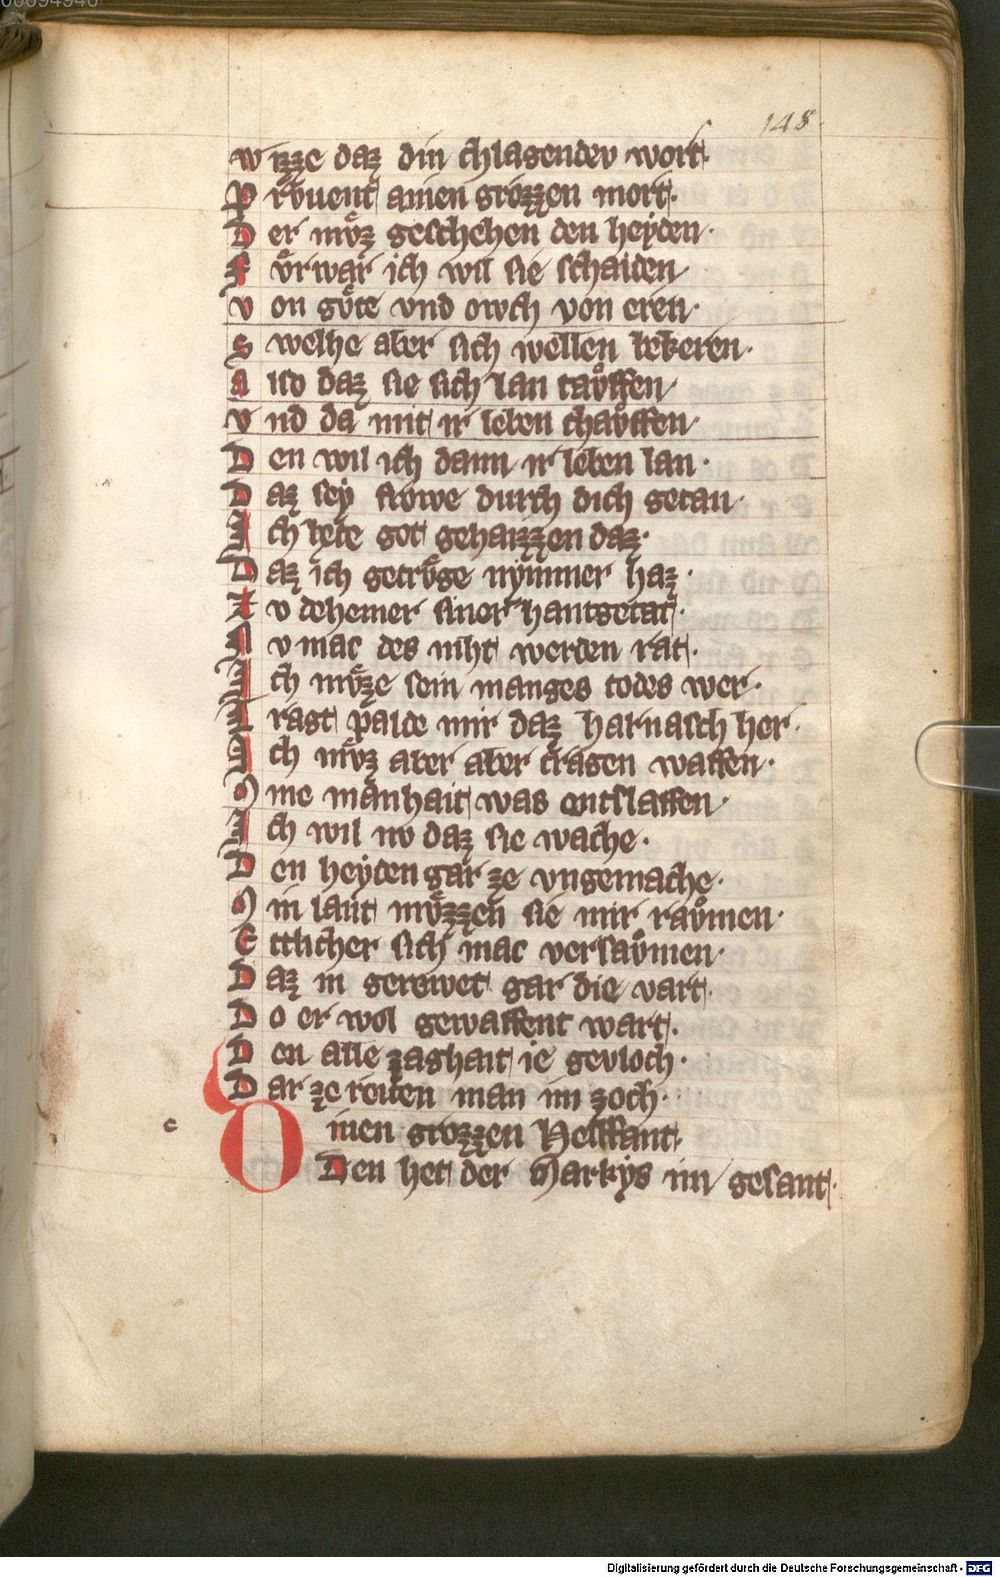 148
Wizze daz din chlagendev wort·
Prvͤuent ainen grozzen mort·
Der mvͤz geschehen den heyden·
Fvͤrwar ich wil sie schaiden
Von gvͤte vnd owch von eren·
Swelhe aber sich wellen bekeren·
Also daz sie sich lan tavͤffen
Vnd da mit ir leben chavͤffen·
Den wil ich dann ir leben lan·
Daz sey frowe durch dich getan·
Ich hete got gehaizzen daz·
Daz ich getrvͤge nymmer haz·
Zv deheiner siner hantgetat·
Nv mac des niht werden rat·
Ich mvͤze sein manges todes wer·
Tragt palde mir daz harnasch her·
Ich mvͤz aber aber tragen waffen·
Mine manhait was entslaffen·
Ich wil nv daz sie wache·
Den heyden gar ze vngemache·
Min lant mvͤzzen sie mir ravͦmen·
Etlicher sich mac versavͦmen·
Daz in gerowet gar die vart·
Do er wol gewaffent wart·
Den alle zaghait ie gevloch·
Dar ze reiten man im zoch·
e
inen grozzen Helffant·
Den het der Markys im gesant·
Digitalisierung gefördert durch die Deutsche Forschungsgemeinschaft - DFG